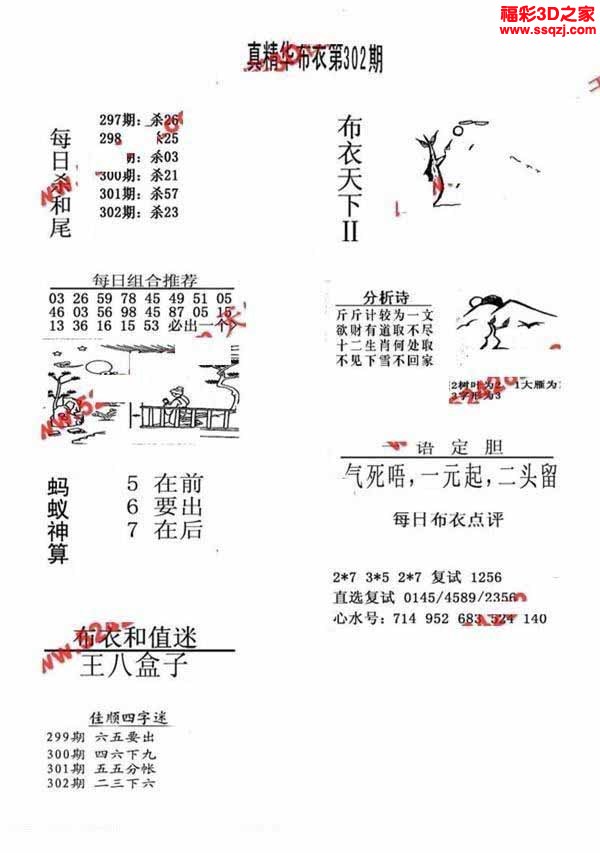 福彩3D之家
www.ssqzj.com
真精华布衣第302期
每日杀和尾
297期：杀26
298 25
杀03
300期：杀21
301期：杀57
302期：杀23
布衣天下II
每日组合推荐
03 26 59 78 45 49 51 05
46 03 56 98 45 87 05 15
13 36 16 15 53 必出一个
分析诗
斤斤计较为一文
欲财有道取不尽
十二生肖何处取
不见下雪不回家
2树叶为2 1大雁为
3字形为3
蚂蚁神算
5 在前
6 要出
7 在后
语定胆
气死唔，一元起，二头留
每日布衣点评
2*7 3*5 2*7 复试 1256
直选复试 0145/4589/2356
心水号：714 952 683 524 140
布衣和值迷
王八盒子
佳顺四字迷
299期 六五要出
300期 四六下九
301期 五五分帐
302期 二三下六